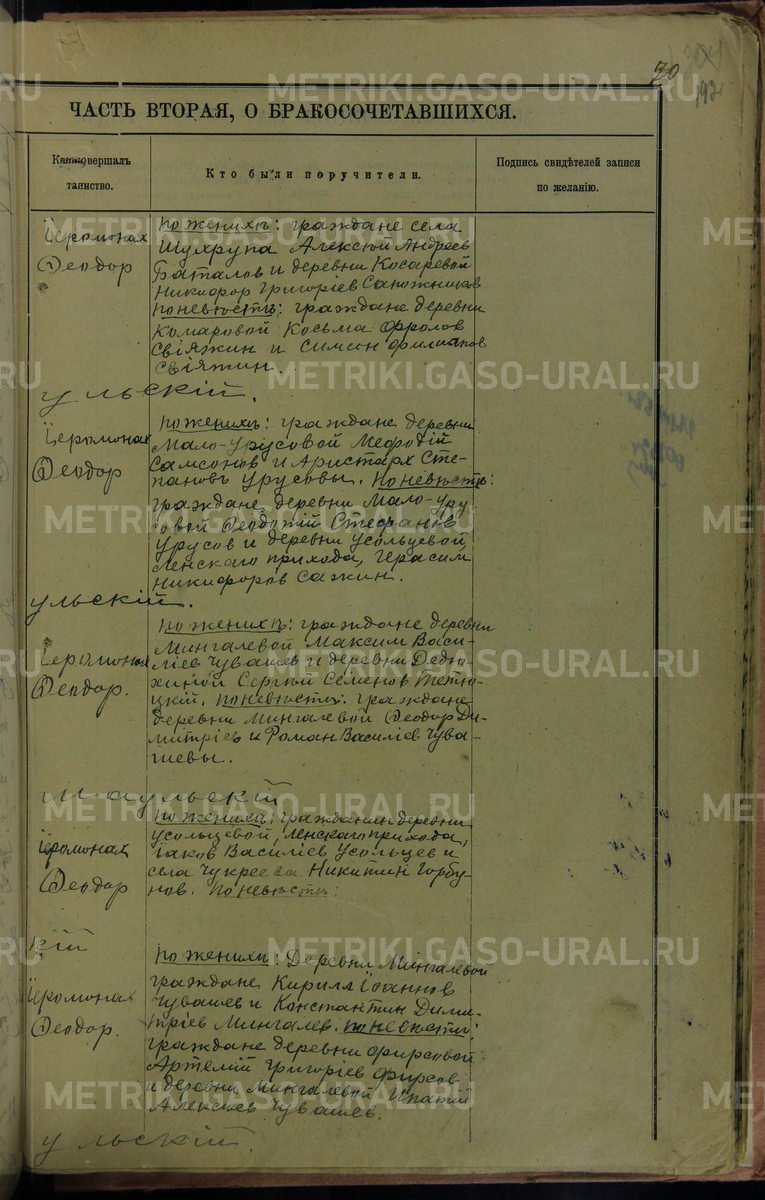 70
192
ЧАСТЬ ВТОРАЯ, О БРАКОСОЧЕТАВШИХСЯ.
Кто совершалъ
таинство.
Кто были поручители.
Подпись свидѣтелей записи
по желанію.
Іеромонах
Ѳеодор
По женихѣ: граждане села
Шухрупа Алексѣй Андреев
Баталов и деревни Косаревой
Никифор Григоріев Сапожников
По невѣстѣ: граждане деревни
Комаровой Косьма Фролов
Свіяжин и Симеон Филиппов
Свіяжин.
ульскій.
Іеромонах
Ѳеодор
По женихѣ: граждане деревни
Мало-Урусовой Меѳодій
Самсонов и Аристарх Сте-
пановъ Урусовы. По невѣстѣ:
граждане деревни Мало-Уру-
совой Ѳеодотій Стефанов
Урусов и деревни Усольцевой,
Ленскаго прихода, Герасим
Никифоров Сажин.
ульскій.
Іеромонах
Ѳеодор.
По женихѣ: граждане деревни
Мингалевой Максим Васи-
ліев Чувашев и деревни Дедю-
хиной Сергѣй Семенов Тетю-
цкій. По невѣстѣ: граждане
деревни Мингалевой Ѳеодор Ди-
митріев и Роман Василіев Чува-
шевы.
ульскій
Іеромонах
Ѳеодор
По женихѣ: гражданин деревни
Усольцевой, Ленскаго прихода,
Іаков Василіев Усольцев и
села Чукреева Никитин Горбу-
нов. По невѣстѣ:
кій
Іеромонах
Ѳеодор.
По женихѣ: Деревни Мингалевой
граждане Кирилл Іоаннов
Чувашев и Константин Дими-
тріев Мингалев. По невѣстѣ:
граждане деревни Фирсовой
Артемій Григоріев Фирсов
и деревни Мингалевой Ипатій
Алексѣев Чувашев.
ульскій.
METRIKI.GASO-URAL.RU